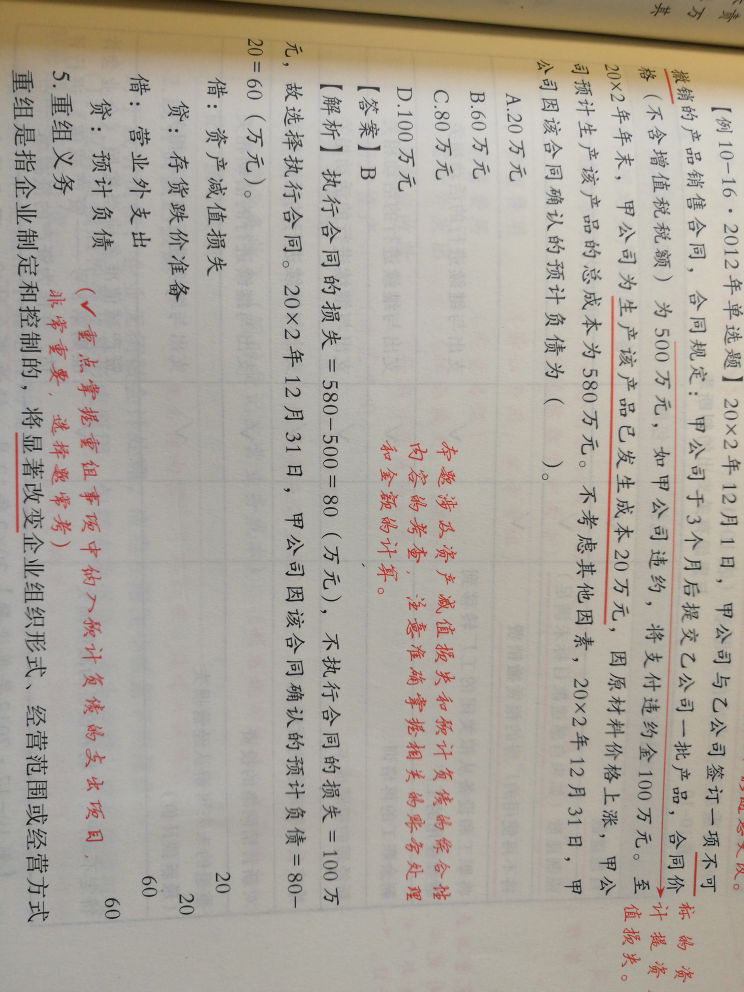 的迹象更换。
【例10-16·2012年单选题】20×2年12月1日，甲公司与乙公司签订一项不可
撤销的产品销售合同，合同规定：甲公司于3个月后提交乙公司一批产品，合同价
格（不含增值税税额）为500万元，如甲公司违约，将支付违约金100万元。至
20×2年年末，甲公司为生产该产品已发生成本20万元，因原材料价格上涨，甲公
司预计生产该产品的总成本为580万元。不考虑其他因素，20×2年12月31日，甲
公司因该合同确认的预计负债为（　　）。
标的资
计提资
值损失。
A.20万元
B.60万元
C.80万元
D.100万元
本题涉及资产减值损失和预计负债的综合性
内容的考查，注意准确掌握相关的账务处理
和金额的计算。
【答案】B
【解析】执行合同的损失=580-500=80（万元），不执行合同的损失=100万
元，故选择执行合同。20×2年12月31日，甲公司因该合同确认的预计负债=80-
20=60（万元）。
借：资产减值损失 20
贷：存货跌价准备 20
借：营业外支出 60
贷：预计负债 60
（✓重点掌握重组事项中纳入预计负债的支出项目，
非常重要，选择题常考）
5.重组义务
重组是指企业制定和控制的，将显著改变企业组织形式、经营范围或经营方式